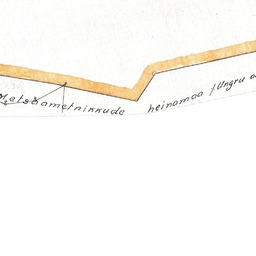 Metsaametnikkude heinamaa / Ungru